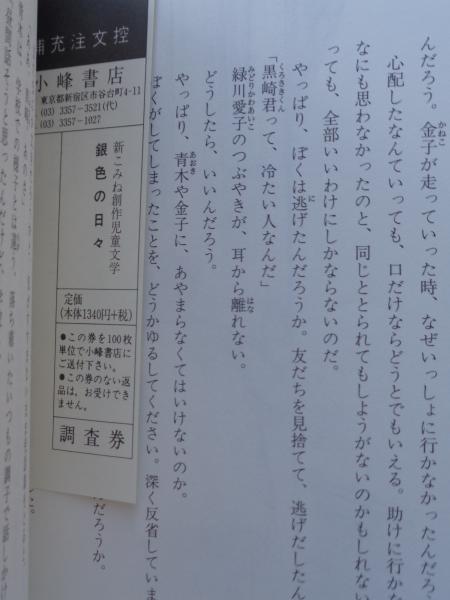 んだろう。金子が走っていった時、なぜいっしょに行かなかったんだろ
心配したなんていっても、口だけならどうとでもいえる。助けに行かな
なにも思わなかったのと、同じととられてもしようがないのかもしれない
っても、全部いいわけにしかならないのだ。
やっぱり、ぼくは逃げたんだろうか。友だちを見捨てて、逃げだしたん
「黒崎君って、冷たい人なんだ」
緑川愛子のつぶやきが、耳から離れない。
どうしたら、いいんだろう。
やっぱり、青木や金子に、あやまらなくてはいけないのか。
ぼくがしてしまったことを、どうかゆるしてください。深く反省していま
んだろうか。
補充注文控
小峰書店
東京都新宿区市谷台町4-11
(03) 3357-3521(代)
(03) 3357-1027
新こみね創作児童文学
銀色の日々
定価
(本体1340円+税)
●この券を100枚
単位で小峰書店に
ご送付下さい。
●この券のない返
品は、お受けでき
ません。
調査券